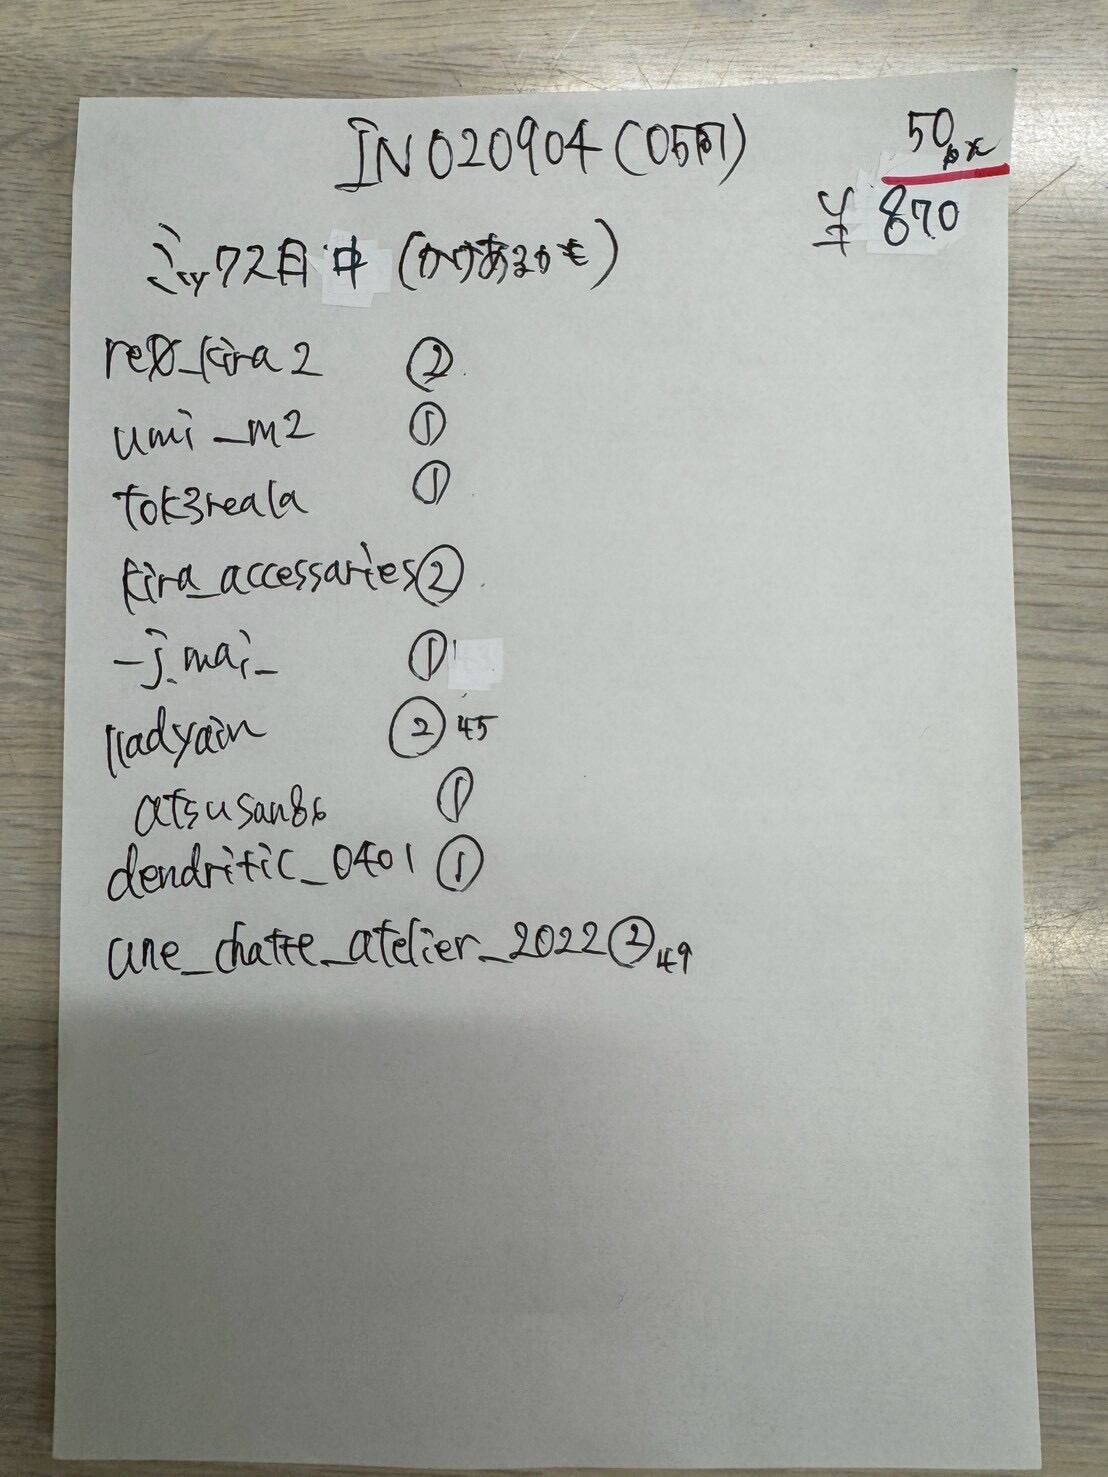 IN020904(05円)
50px
¥870
ミックス目中(かけあるかも)
re8_kira2 ②
umi_m2 ①
tok3reala ①
kira_accessaries②
_j.mai_ ①
lladyain ② 45
atsusan86 ①
dendritic_0401 ①
une_chatte_atelier_2022②49